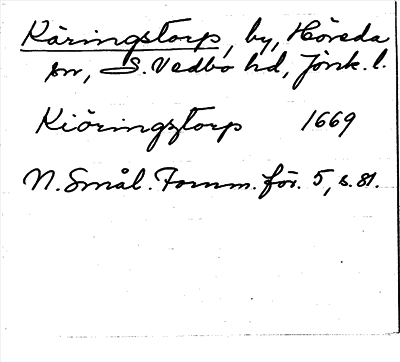 Käringstorp, by, Höreda
sn, S. Vedbo hd, Jönk. l.
Kiöringztorp 1669
N. Smål. Fornm. för. 5, s. 81.